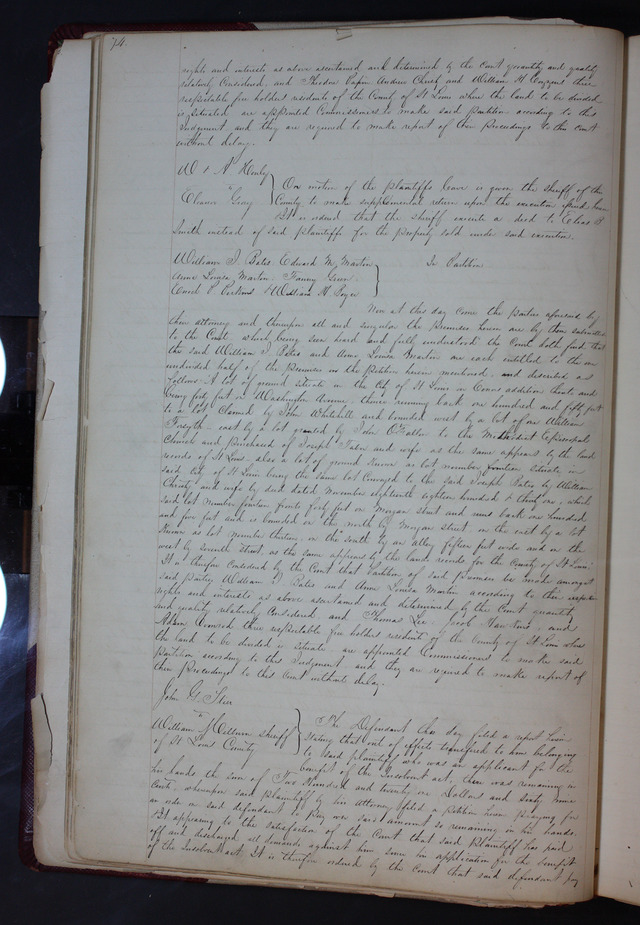 74
rights and interests as above ascertained and determined by the Court quantity and quality
relatively Considered, and Theodore Papin Andrew Christy and William H Cozzens three
respectable free holders residents of the County of St Louis where the land to be divided
is situated are appointed Commissioners to make said Partition according to this
Judgement, and they are required to make report of their Proceedings to this Court
without delay.
W & A
vs
Eleanor
On motion of the plaintiffs leave is given the sheriff of this
County to make supplemental return upon the execution herein
It is ordered that the sheriff execute a deed to Elias
Smith instead of said plaintiffs for the property sold under said execution.
William J. Bates Edward M. Martin
Anne Louisa Martin Fanny
& William H
In Partition
Now at this day come the parties aforesaid by
their attorney and thereupon all and singular the Premises herein are by them submitted
to the Court which being seen heard and fully understood the Court doth find that
the said William J. Bates and Anne Louisa Martin are each intitled to the one
undivided half of the Premises in the petition herein mentioned, and described as
follows. A lot of ground situate in the City of St Louis in addition thereto and
being forty feet on Washington Avenue, thence running back one hundred and fifty feet
to a lot Claimed by John Whitehill and bounded west by a lot of one William
Forsyth east by a lot granted by John O'Fallon to the Methodist Episcopal
Church and purchased of Joseph and wife as the same appears by the land
records of St Louis also a lot of ground known as lot number fourteen situate in
said City of St Louis being the same lot Conveyed to the said Joseph Bates by William
Christy and wife by deed dated November eighteenth eighteen hundred & thirty one, which
said lot number fourteen fronts forty feet on Morgan street and runs back one hundred
and five feet and is bounded on the north by Morgan street on the east by a lot
known as lot number thirteen on the south by an alley fifteen feet wide and on the
west by seventh street as the same appears by the land records for the County of St Louis
It is therefore Considered by the Court that Partition of said Premises be made amongst
said parties William J Bates and Anne Louisa Martin according to their respective
rights and interests as above ascertained and determined by the Court quantity
and quality relatively Considered and Thomas Lee, Jacob and
three respectable free holders residents of the County of St Louis where
the land to be divided is situate are appointed Commissioners to make said
partition according to this Judgement and they are required to make report of
their Proceedings to this Court without delay.
John G.
vs
William Milburn Sheriff
of St Louis County
The Defendant this day filed a report herein
stating that out of effects transferred to him belonging
to said plaintiff who was an applicant for the
benefit of the Insolvent act, there was remaining in
his hands the sum of Two Hundred and twenty one Dollars and sixty nine
Cents, whereupon said plaintiff by his Attorney filed a Petition herein praying for
an order on said defendant to Pay over said amount so remaining in his hands.
It appearing to the satisfaction of the Court that said Plaintiff has paid
off and discharged all demands against him since his application for the benefit
of the Insolvent act. It is therefore ordered by the Court that said defendant pay